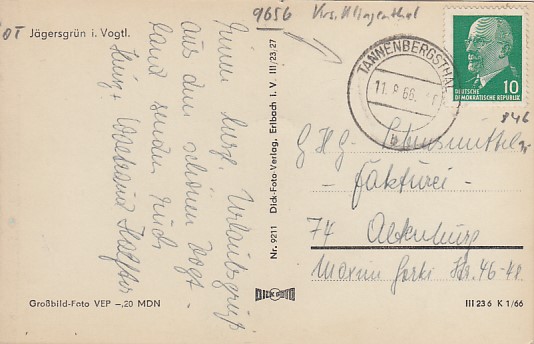 9656 Krs. Klingenthal
OT Jägersgrün i. Vogtl.
Einen herzl. Urlaubsgruß
aus dem schönen Vogt-
land senden Euch
Heinz +
Großbild-Foto VEP –,20 MDN
Nr. 9211 Dick-Foto-Verlag, Erlbach i. V. III/23,27
DICK FOTO
TANNENBERGSTHAL
11. 8. 66.
b
10
DEUTSCHE
DEMOKRATISCHE REPUBLIK
846
G.H.G. Lebensmittel
- Fakturei -
74 Altenburg
Maxim Gorki Str. 46-48
III 23 6 K 1/66